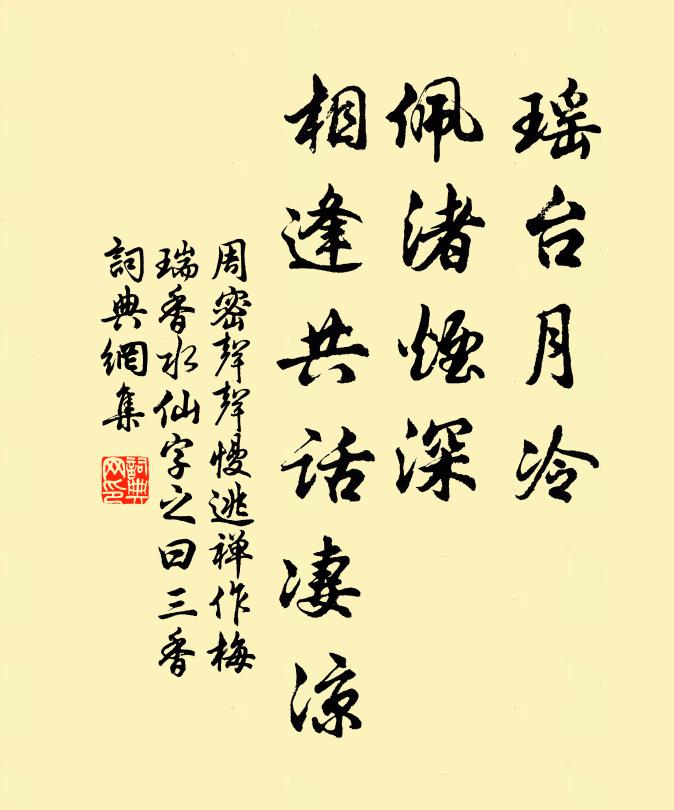 瑶台月冷
佩渚煙深
相逢共话凄涼
周密聲聲慢逃禅作梅
瑞香水仙字之曰三香
詞典網集
詞典
网印